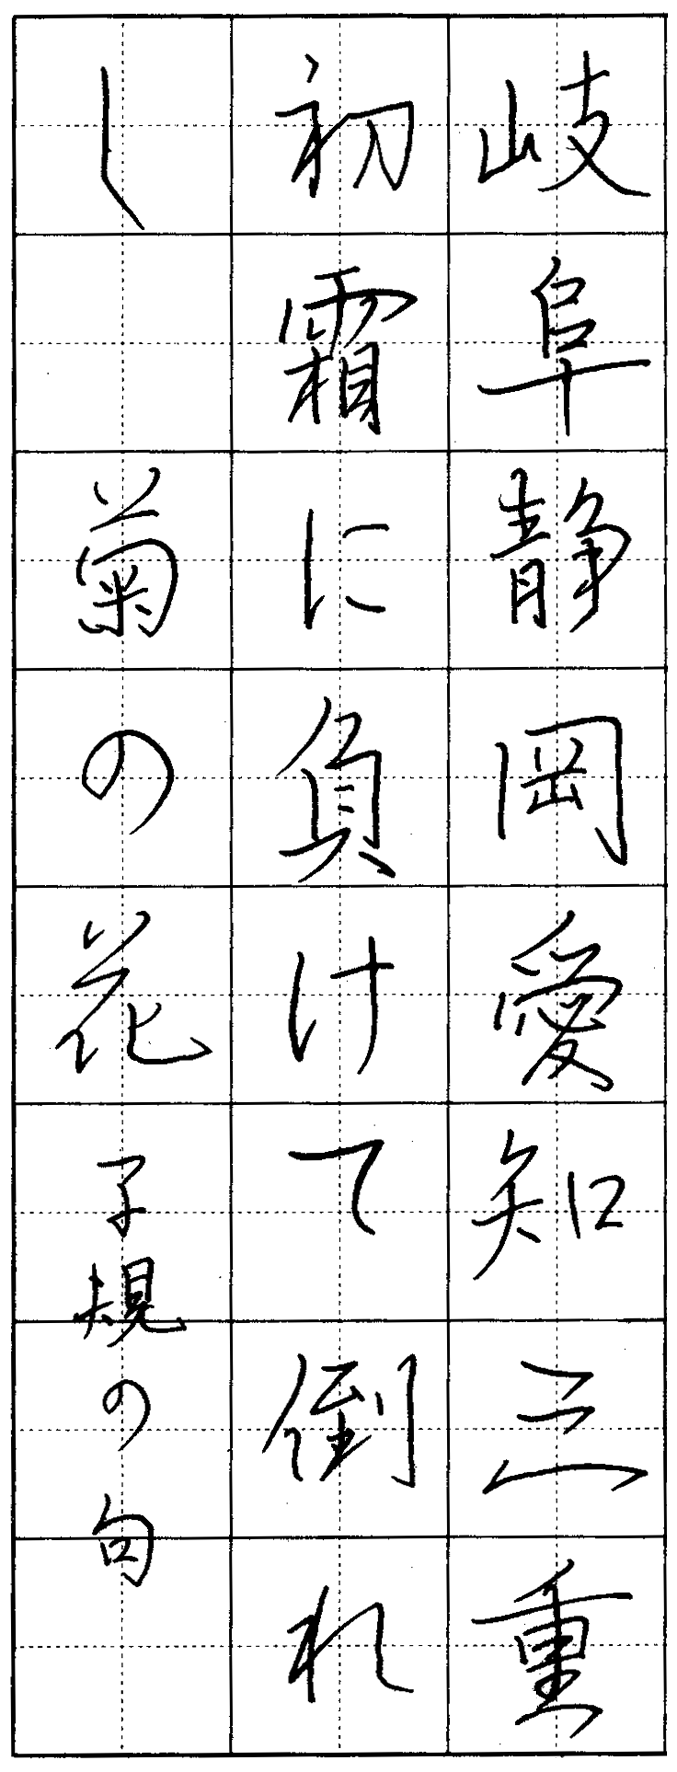 岐阜静岡愛知三重
初霜に負けて倒れ
し 菊の花 子規の句